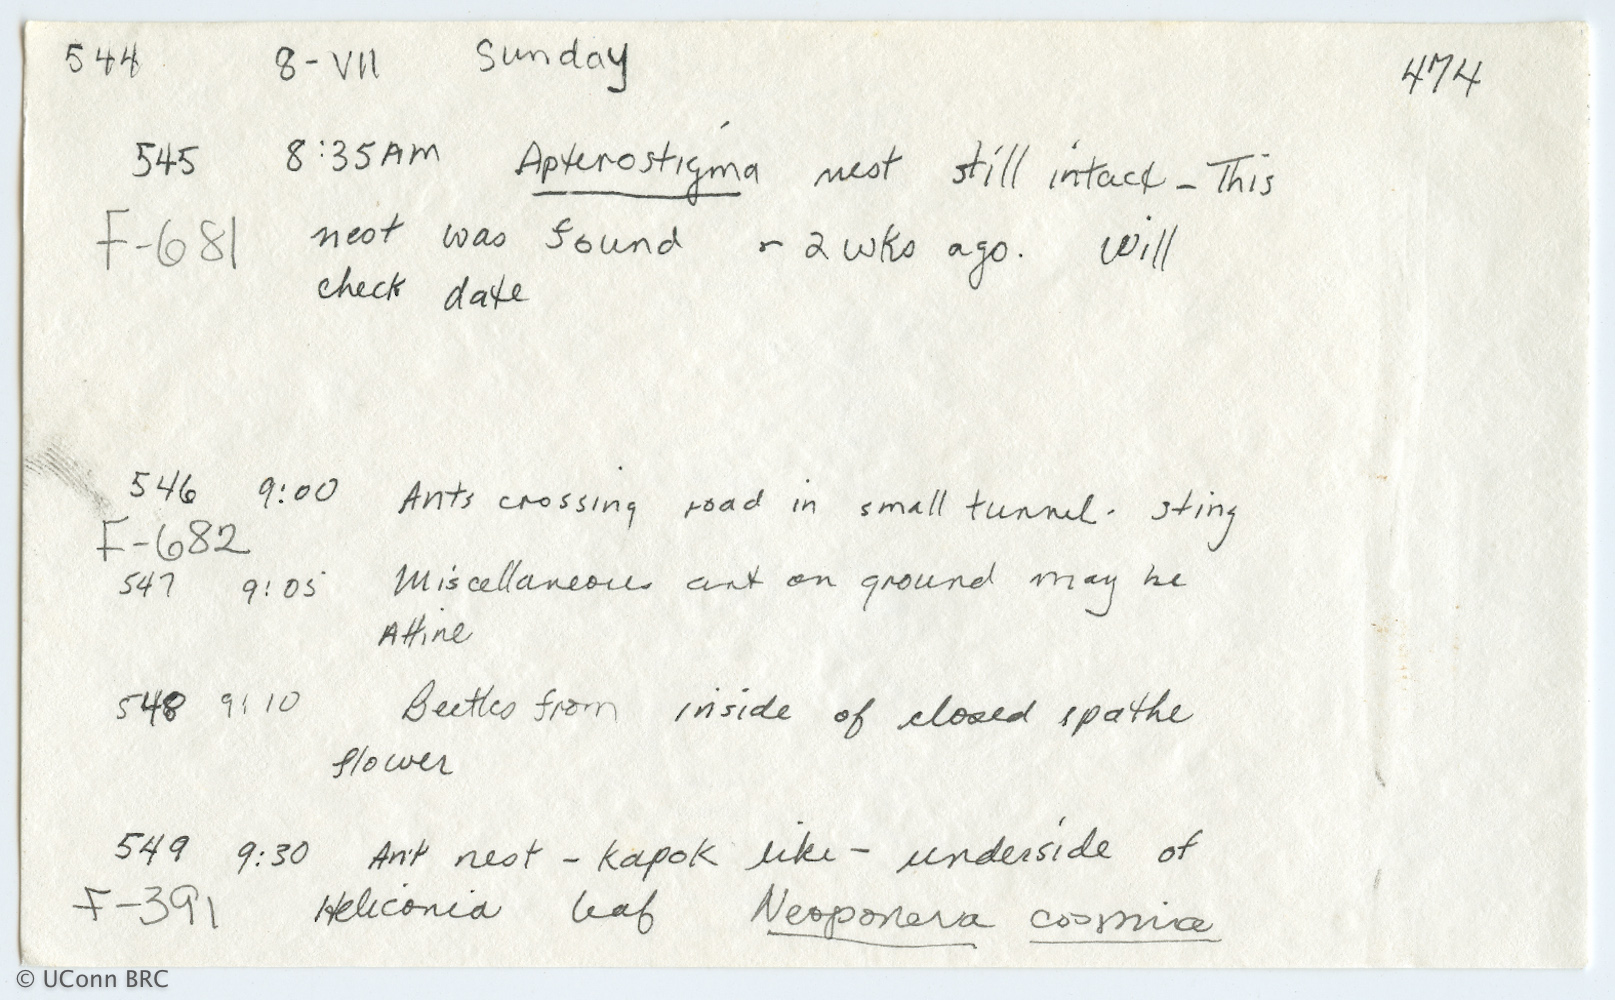 544 8-VII Sunday 474
545 8:35AM Apterostigma nest still intact - This
F-681 nest was found ~ 2 wks ago. Will
check date
546 9:00 Ants crossing road in small tunnel. sting
F-682
547 9:05 Miscellaneous ant on ground may be
Attine
548 9:10 Beetles from inside of closed spathe
flower
549 9:30 Ant nest - Kapok like - underside of
F-391 Heliconia leaf Neoponera
© UConn BRC